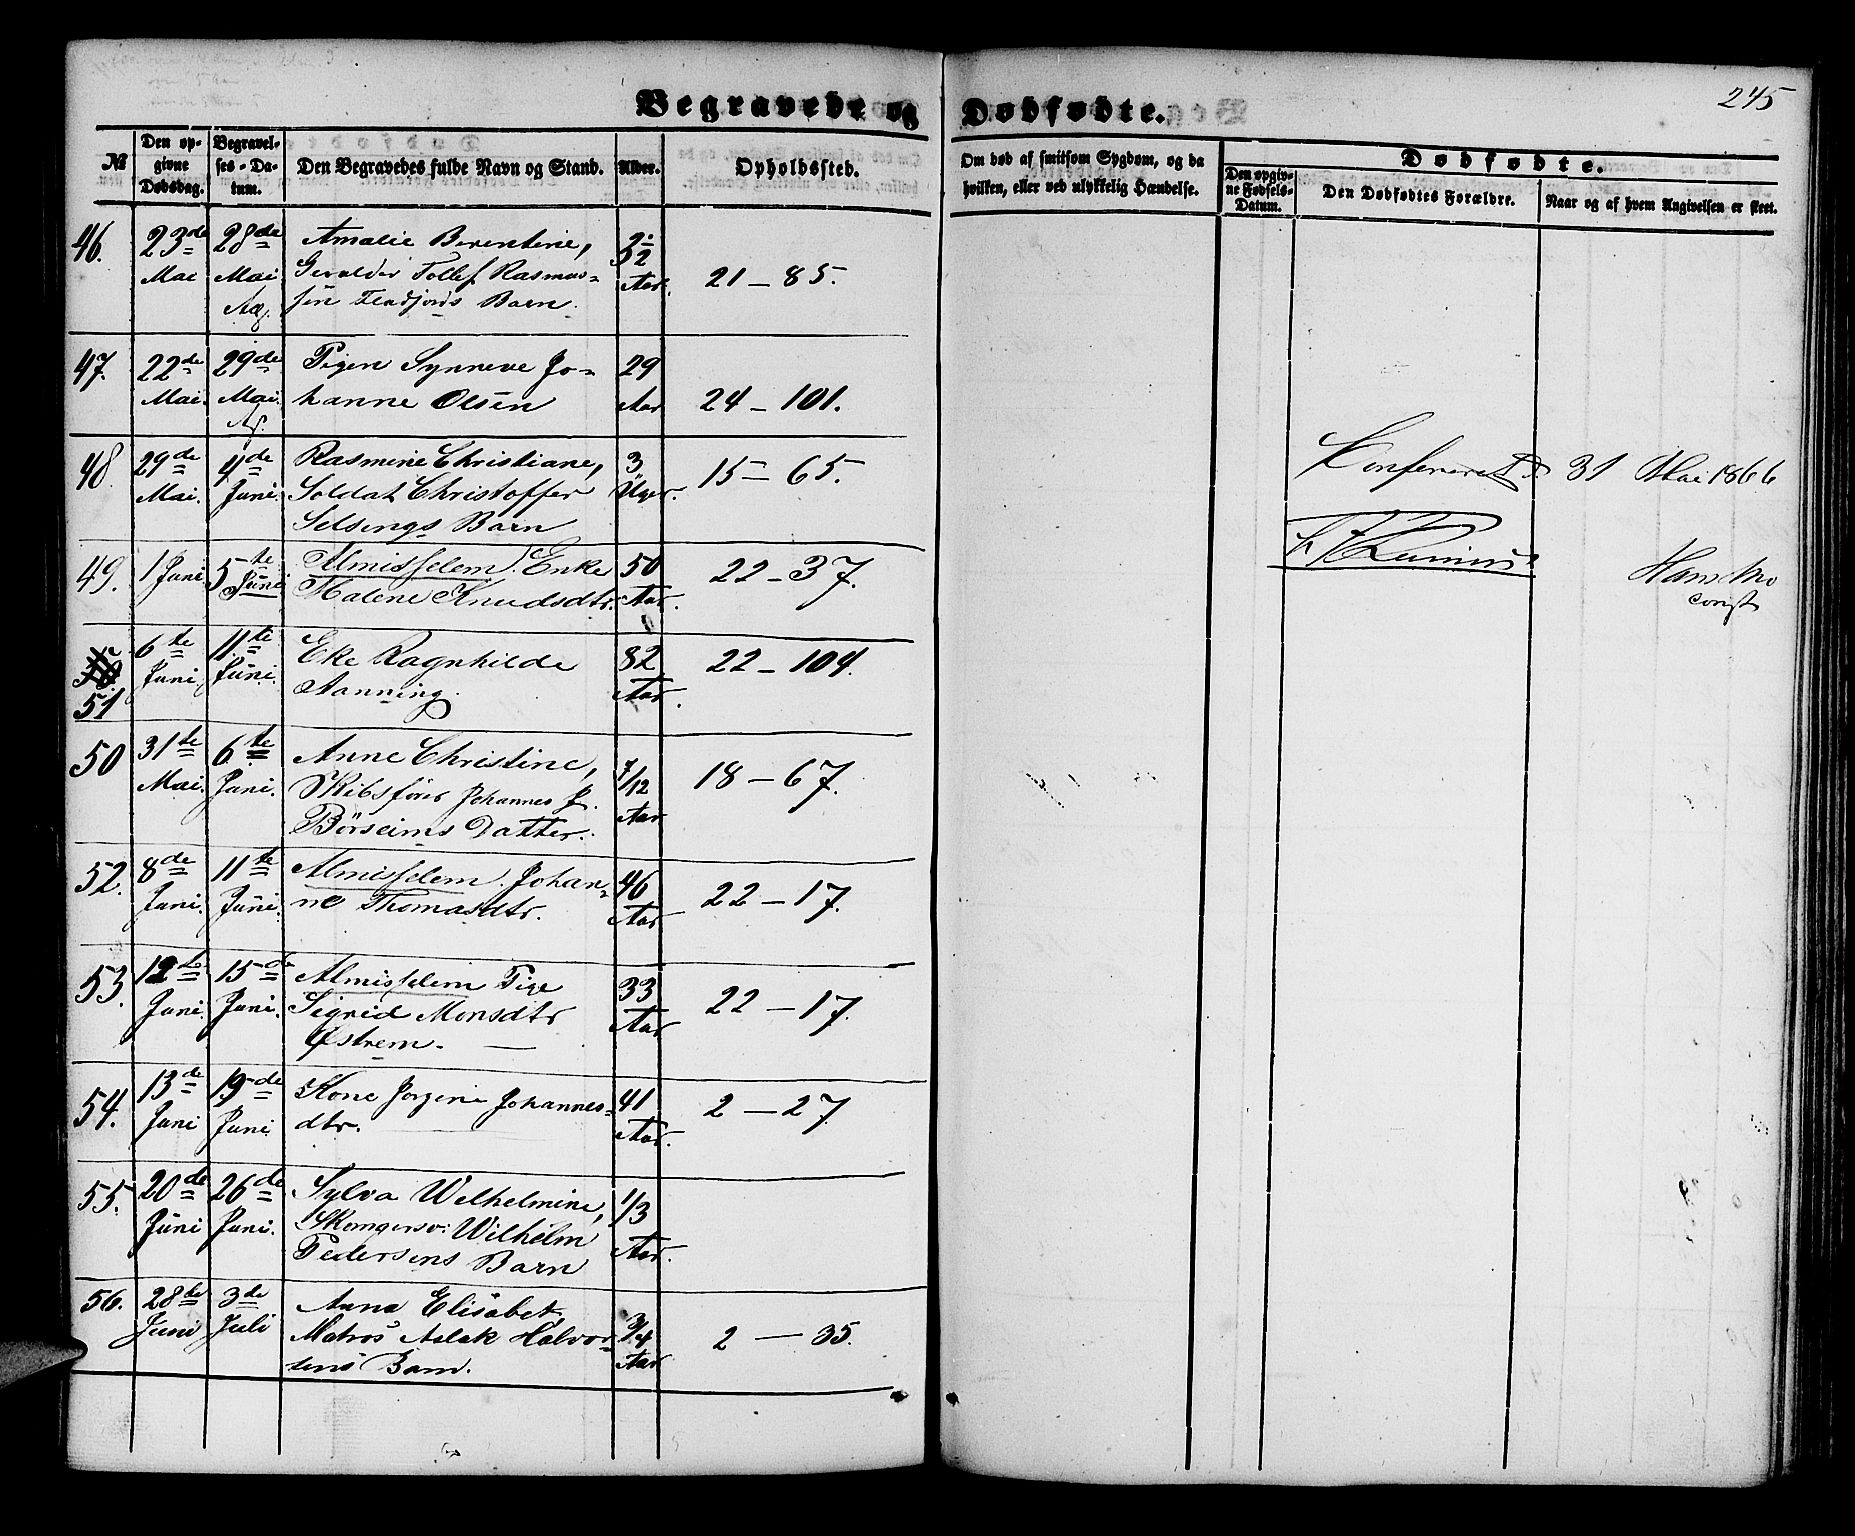 245
Begravede og Dødfødte.
№
Den op-
givne
Dødsdag.
Begravel-
ses-Da-
tum.
Den Begravedes fulde Navn og Stand.
Alder.
Opholdssted.
Om død af smitsom Sygdom, og da
hvilken, eller ved ulykkelig Hændelse.
Dødfødte.
Den opgiv-
ne Fødsels-
Datum.
Den Dødfødtes Forældre.
Naar og af hvem Angivelsen er skeet.
46. 23de Mai 28de Mai
Amalie Berentine,
Tollef Rasmus-
sen Barn.
Aar. 21 – 85.
47. 22de Mai. 29de Mai.
Pigen Synneve Jo-
hanne Olsen
29 Aar 24 – 101.
48 29de Mai. 4de Juni.
Rasmine Christiane,
Soldat Christoffer
Selsings Barn
3 Uger. 15 – 65.
Konfereret d. 31 Mai 1866
49. 1 Juni 5te Juni
Almisselem. Enke
Malene Knudsdtr.
50 Aar. 22 – 37.
const
51 6te Juni 11te Juni.
Eke Ragnhilde
Aanning.
82 Aar. 22 – 104.
50 31te Mai. 6te Juni.
Anne Christine,
Skibsfører Johannes J.
Børseims Datter.
7/12 Aar 18 – 67.
52. 8de Juni. 11te Juni.
Almisselem. Johan-
ne Thomasdtr.
46 Aar 22 – 17.
53. 12te Juni. 15de Juni.
Almisselem Pige
Sigrid Monsdtr
Østrem.
33 Aar 22 – 17.
54. 13de Juni 19de Juni
Kone Jorgine Johannes-
dtr.
41 Aar. 2 – 27.
55. 20de Juni 26de Juni.
Sylva Wilhelmine,
Wilhelm
Pedersens Barn
1/3 Aar.
56. 28de Juni 3de Juli
Anna Elisabet,
Matros Aslak Halvor-
sens Barn.
3/4 Aar 2 – 35.